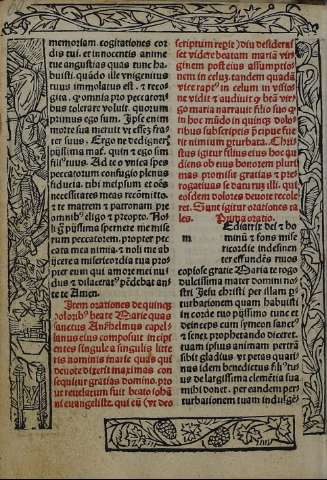 memoriam. cogitationes cor
dis tui. et innocentis anime
tue angustias quas tunc ha-
buisti. quādo ille vnigenitus
tuus immolatus est. ⁊ recos
gita. qꝫ omnia ꝓo peccatori
bus tolerare voluit. quorum
primus ego sum. Ipse enim
morte sua meruit vt essez fra
ter suus. Ergo me dedigneris
pijssima mater. quin ⁊ ego sim
filius tuus. Ad te o vnica spes
peccatorum confugio plenus
fiducia. tibi meipsum et oēs
necessitates meas recōmitto.
te matrem ⁊ patronam pre
omnibꝰ eligo ⁊ preopto. No
pijssima spernere me mise
rum peccatorem. propter pec
cata mea nimia. ⁊ noli me ab
ijcere a misericordia tua pro-
pter eum qui amore mei nu
dus ⁊ dilaceratꝰ pēdebat an
te te Amen.
Item orationes de quinqꝫ
doloribꝰ beate Marie quas
sanctus Anshelmus capel-
lanus eius composuit in ripi
entes singule a singulis litte
ris dominis marie quas qui
deuote dixerit maximas con
sequetur gratias domino. pro
ut reuelatum fuit beato ioha
ni euangeliste. qui cū (vt deo
scriptum repiť) diu desiderasset
videre beatam mariā vir
ginem post eius assumptio
nem in celuz. tandem quadā
vice raptꝰ in celum in visio
ne vidit ⁊ audiuit ꝙ beā vir
go maria narrauit filio suo ꝙ
in hoc mūdo in quinqꝫ dolo
ribus subscriptis p̄cipue fue
rit nimium pturbata. Chri
stus igitur filius eius hoc au
diens ob eius honorem pluri
mas promisit gratias ⁊ pre
rogatiuas se daturuz illi. qui
eosdem dolores deuote recole
ret. Sunt igitur orationes ta
les. Prima oratio.
m Ediatrix dei ⁊ ho
minū ⁊ fons mise
ricordie indesinen
ter effundēs riuos
copiose gratie Maria te rogo
dulcissima mater domini no
stri Jesu christi per illam p
turbationem quam habuisti
in corde tuo pijssimo tunc et
deinceps cum symeon sanctꝰ
⁊ senex prophetando diceret.
tuam ipsius animam pertrā
sibit gladius vt petas quatiꝰ
nus idem benedictus filiꝰ tu
us de largissima clemētia sua
mihi donet. per eandem per
turbationem tuam indulgē